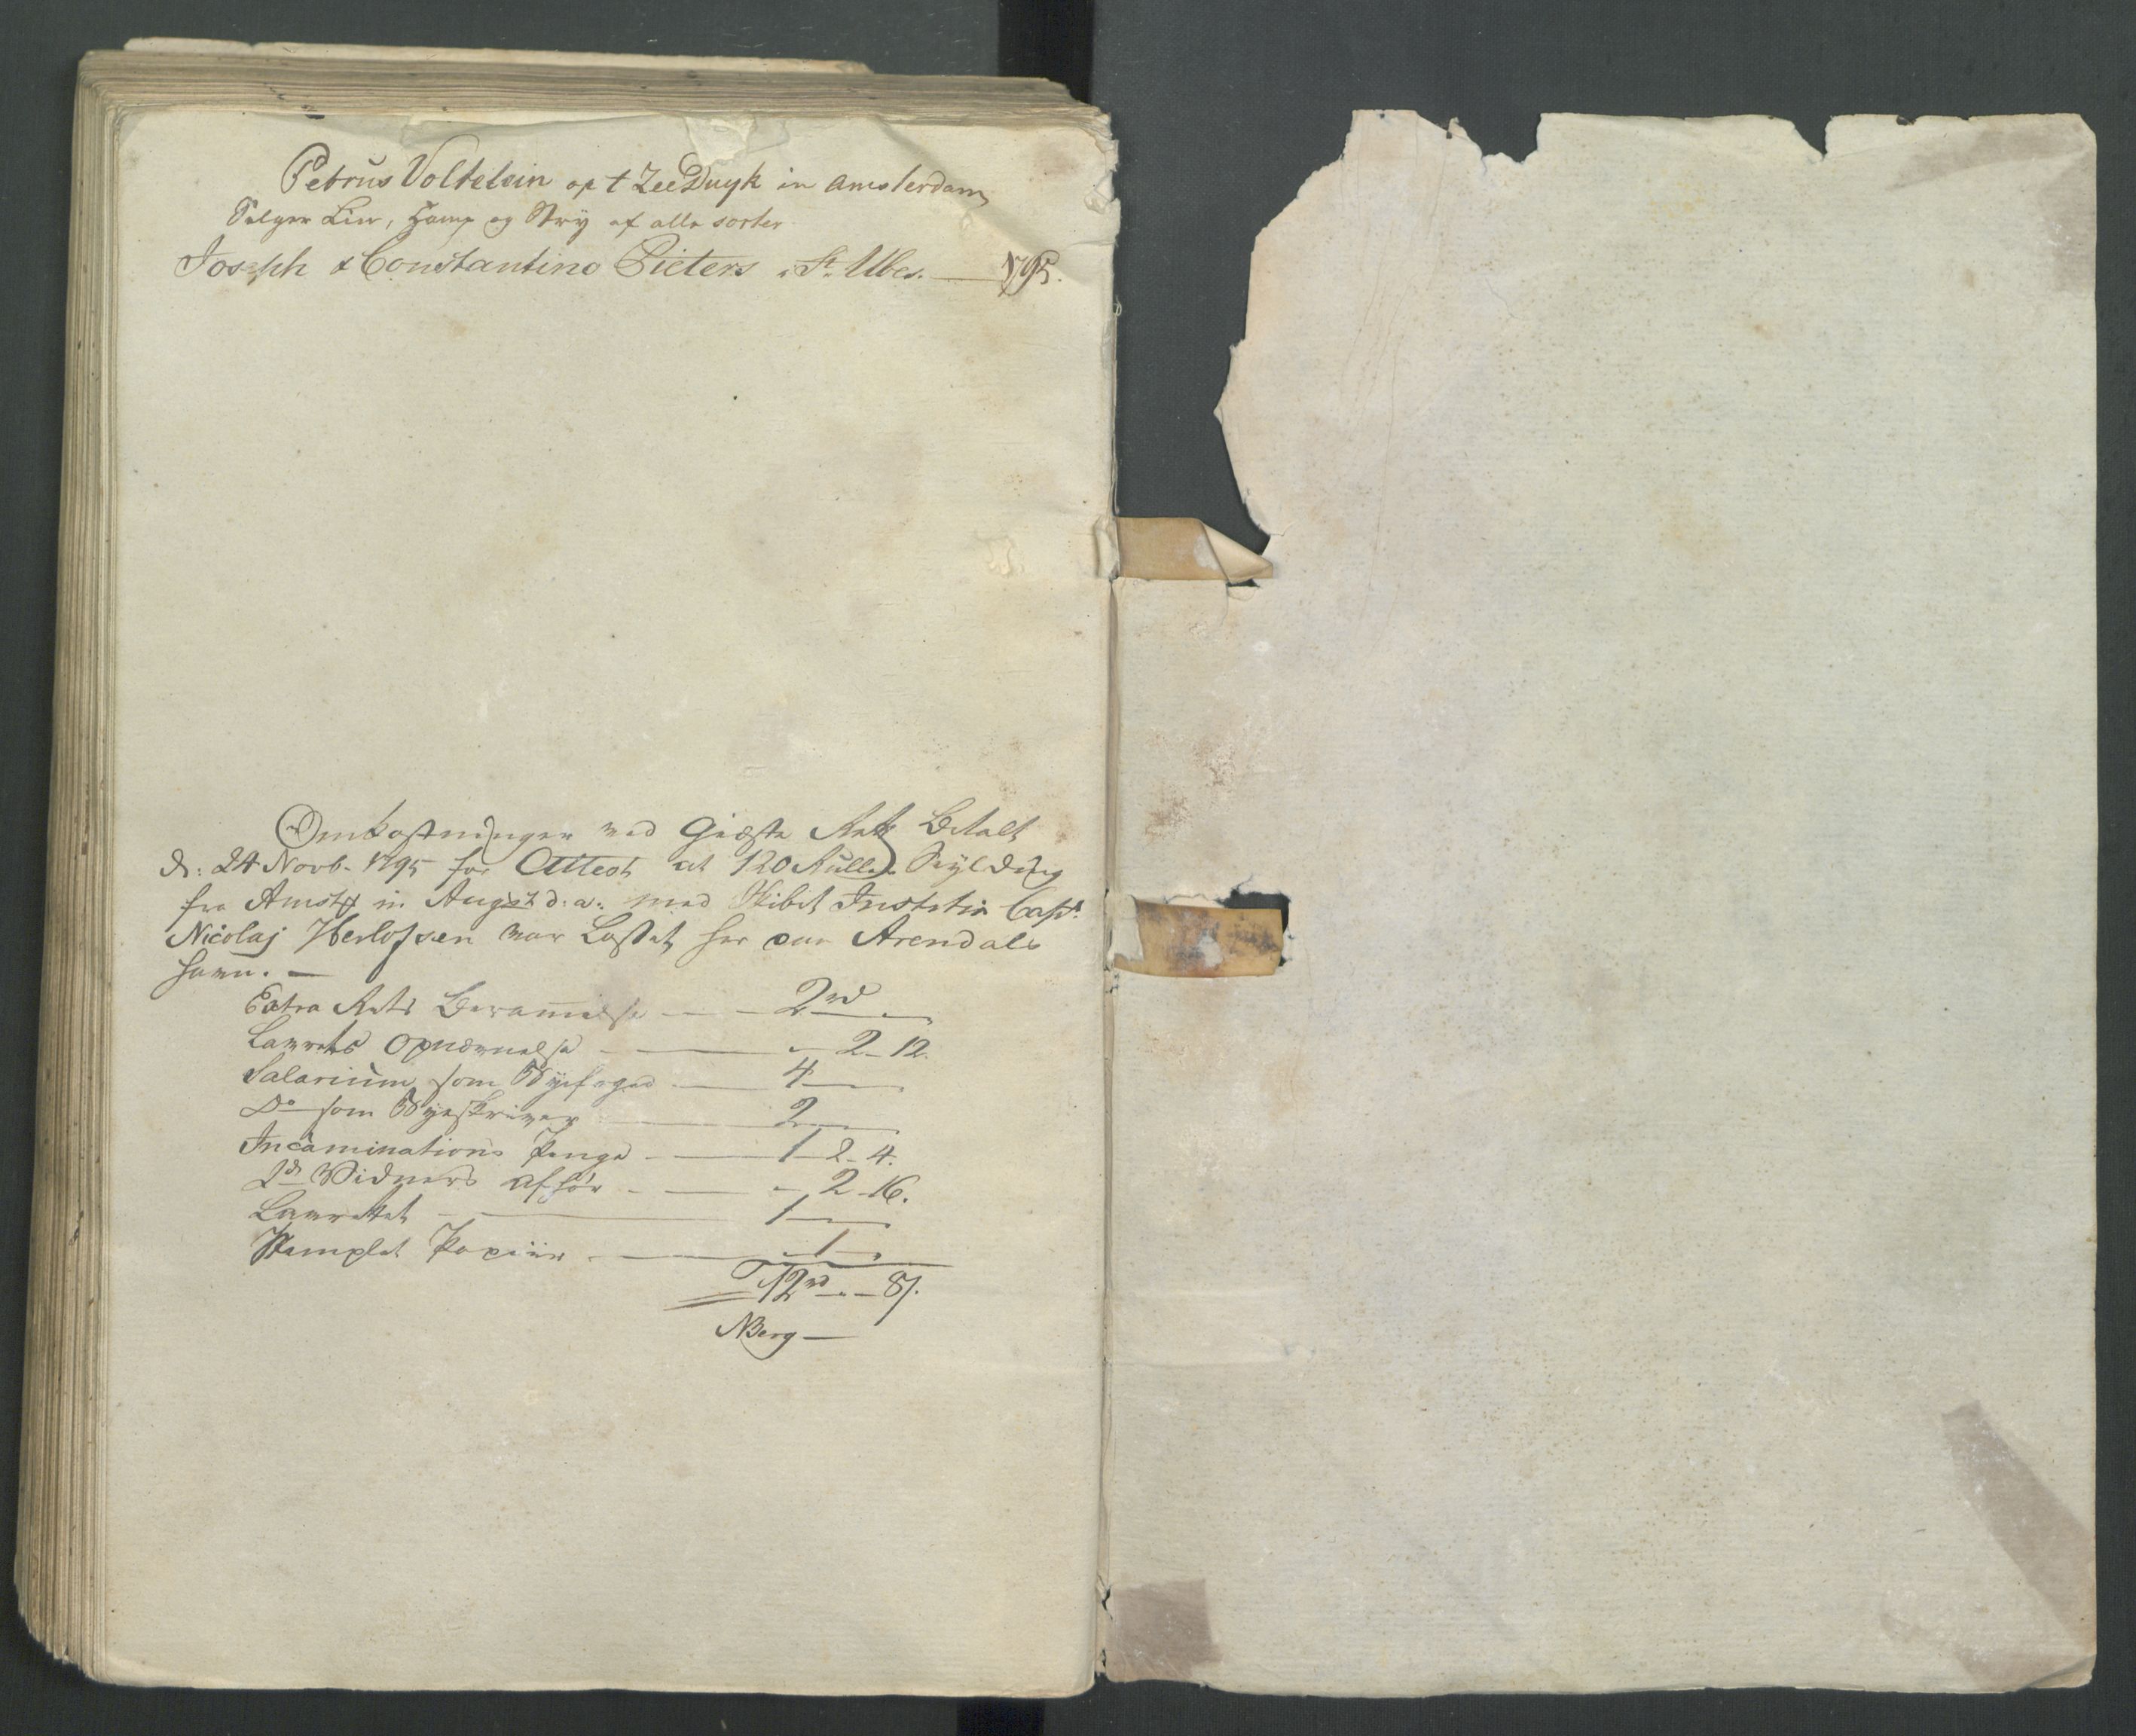 Petrus Voltelein op t Zee Duyk in Amsterdam
Selger Liin, Hamp og Stry af alle sorter
Joseph & Constantino Pieters i St. Ubes. — 1795.
Omkostninger ved Giæste Rett Betalt
d: 24 Novb. 1795 for Attest at 120 Ruller Seyldug
fra Amst in August d: a: med Skibet Justitia Capt.
Nicolaj Herlofsen var Lostet her paa Arendals
havn. —
Extra Rets Berammelse — — 2 rd — .
Laurets Opnævnelse — — „ 2 – 12.
Salarium som Byefoged — 4 — „
Do som Byeskriver — 2 — „
Incaminations Penge — 1 – 2 – 4.
2de Widners afhør — „ 2 – 16.
Laurettet — 1 — „
Stemplet Papiir — „ 1 — „
12 rd – „ – 8 s.
NBerg —